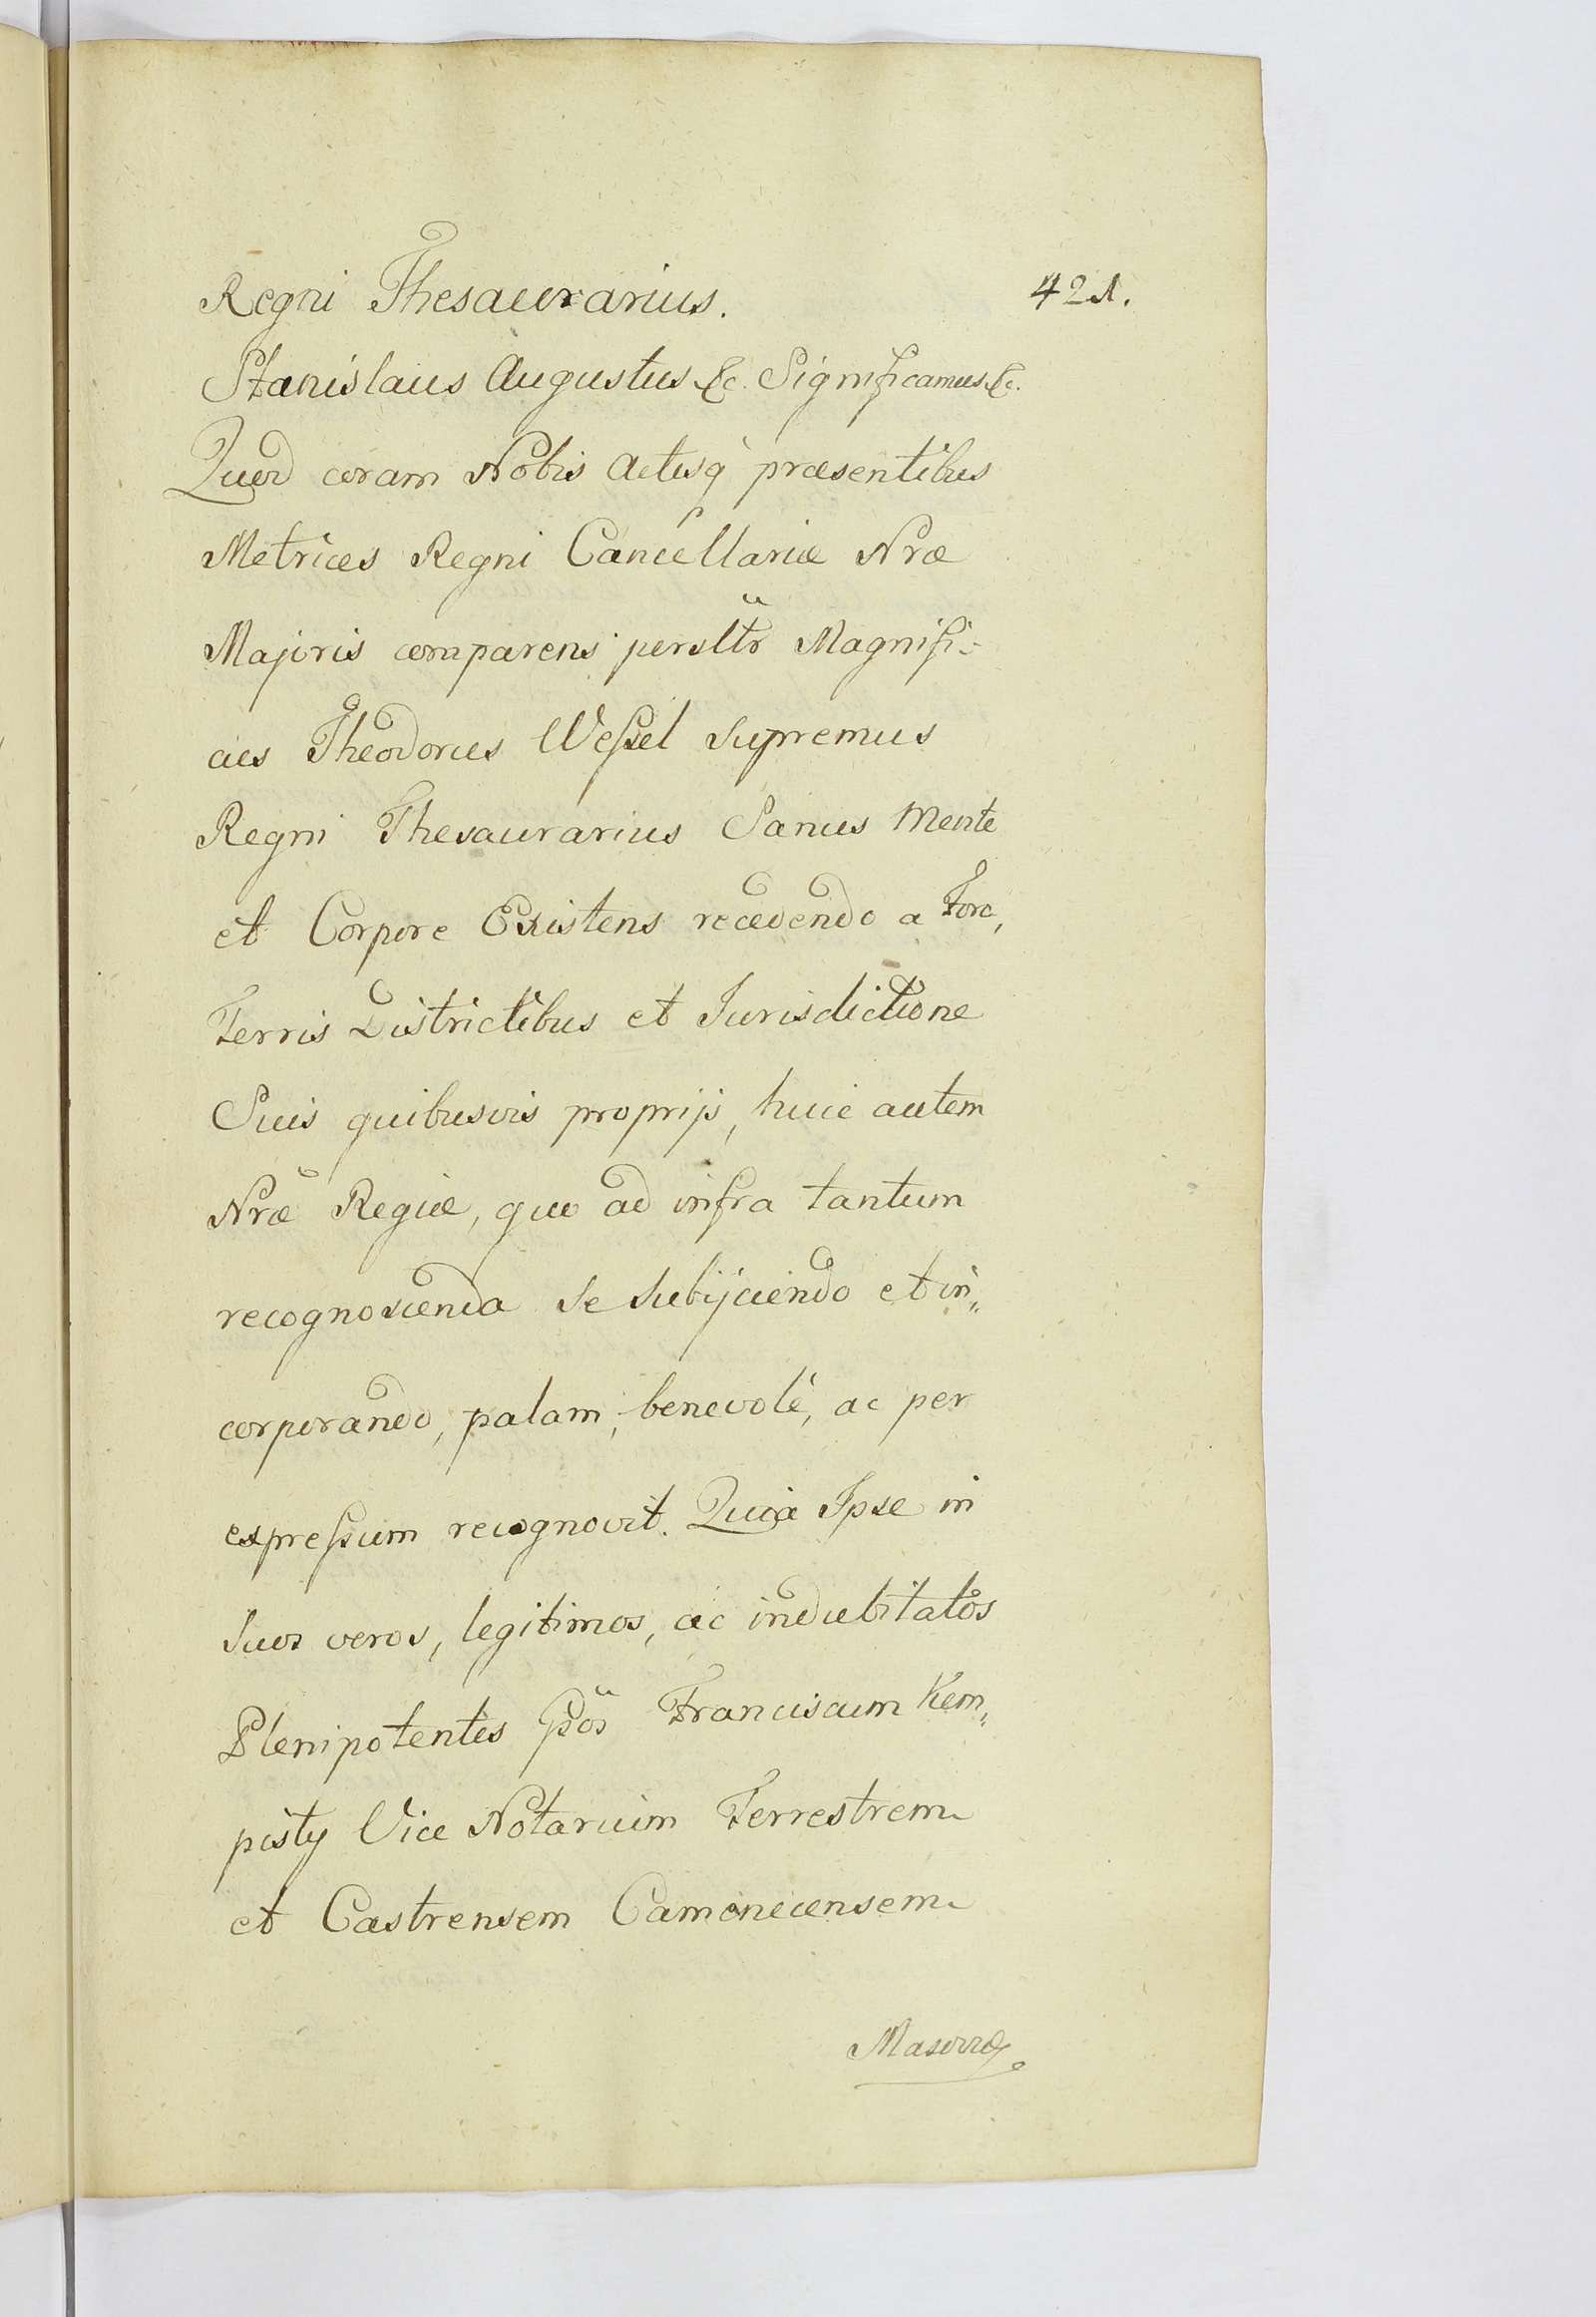 Regni Thesaurarius. 421.
Stanislaus Augustus &c. Significamus &c.
Quod coram Nobis Actisq́ præsentibus
Metrices Regni Cancellariæ Nræ
Majoris comparens persltr̃ Magnifi-
cus Theodorus Weſsel Supremus
Regni Thesaurarius Sanus Mente
et Corpore Existens recedendo a Foro,
Terris Districtibus et Jurisdictione
Suis quibusvis proprijs, huic autem
Nrae Regiæ, quo ad infra tantum
recognoscenda se subijciendo et in„
corporando, palam, benevolè, ac per
expreſsum recognovit. Quia Ipse in
suos veros, legitimos, ac indubitatos
Plenipotentes Franciscum Kem„
pisty Vice Notarium Terrestrem
et Castrensem Camenecensem